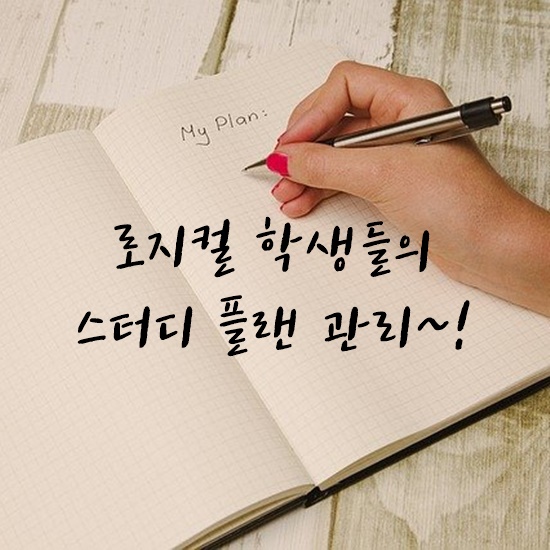 My Plan:
로지컬 학생들의
스터디 플랜 관리~!